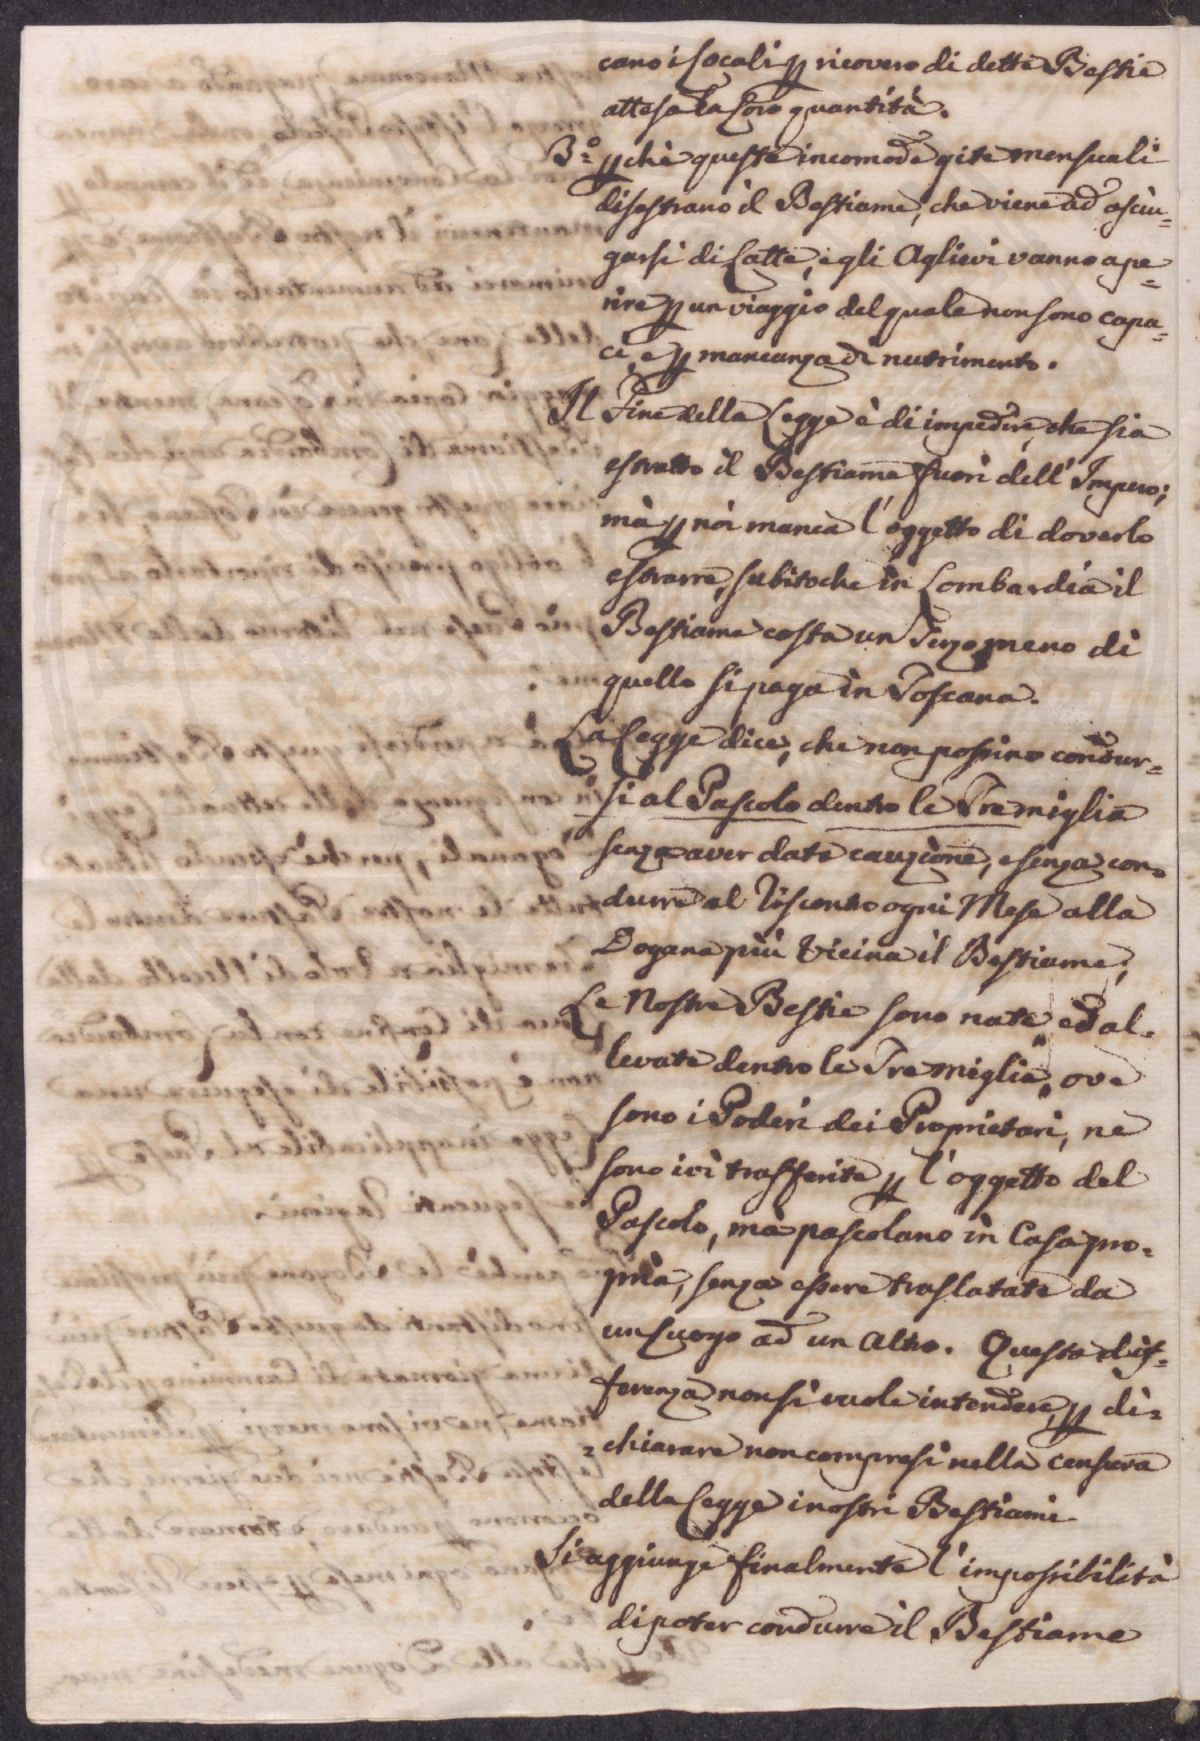 cano i Locali p ricovero di dette Bestie
attesa la loro quantità.
3.° pchè queste incomode gite mensuali
disestrano il Bestiame, che viene ad asciu=
garsi di Latte, e gli Aglievi vanno a pe=
rire p un viaggio del quale non sono capa=
ci, e p mancanza di nutrimento.
Il Fine della Legge è di impedire, che sia
estratto il Bestiame fuori dell' Impero;
mà p noi manca l'oggetto di doverlo
estrarre, subitoche in Lombardia il
Bestiame costa un Terzo meno di
quello si paga in Toscana.
La Legge dice, che non possino condur=
si al Pascolo dentro le Tremiglia
senza aver dato cauzione, e senza con=
durre al Riscontro ogni Mese alla
Dogana più Vicina il Bestiame;
Le Nostre Bestie sono nate ed al=
levate dentro le Tremiglia, ove
sono i Poderi dei Proprietari, ne
sono ivi trasferite p l'oggetto del
Pascolo, mà pascolano in Casa pro=
pria, senza essere traslatate da
un Luogo ad un Altro. Questa dif=
ferenza non si vuole intendere, p di=
=chiarare non compresi nella censura
della Legge i nostri Bestiami.
Si aggiunge finalmente l'impossibilità
di poter condurre il Bestiame